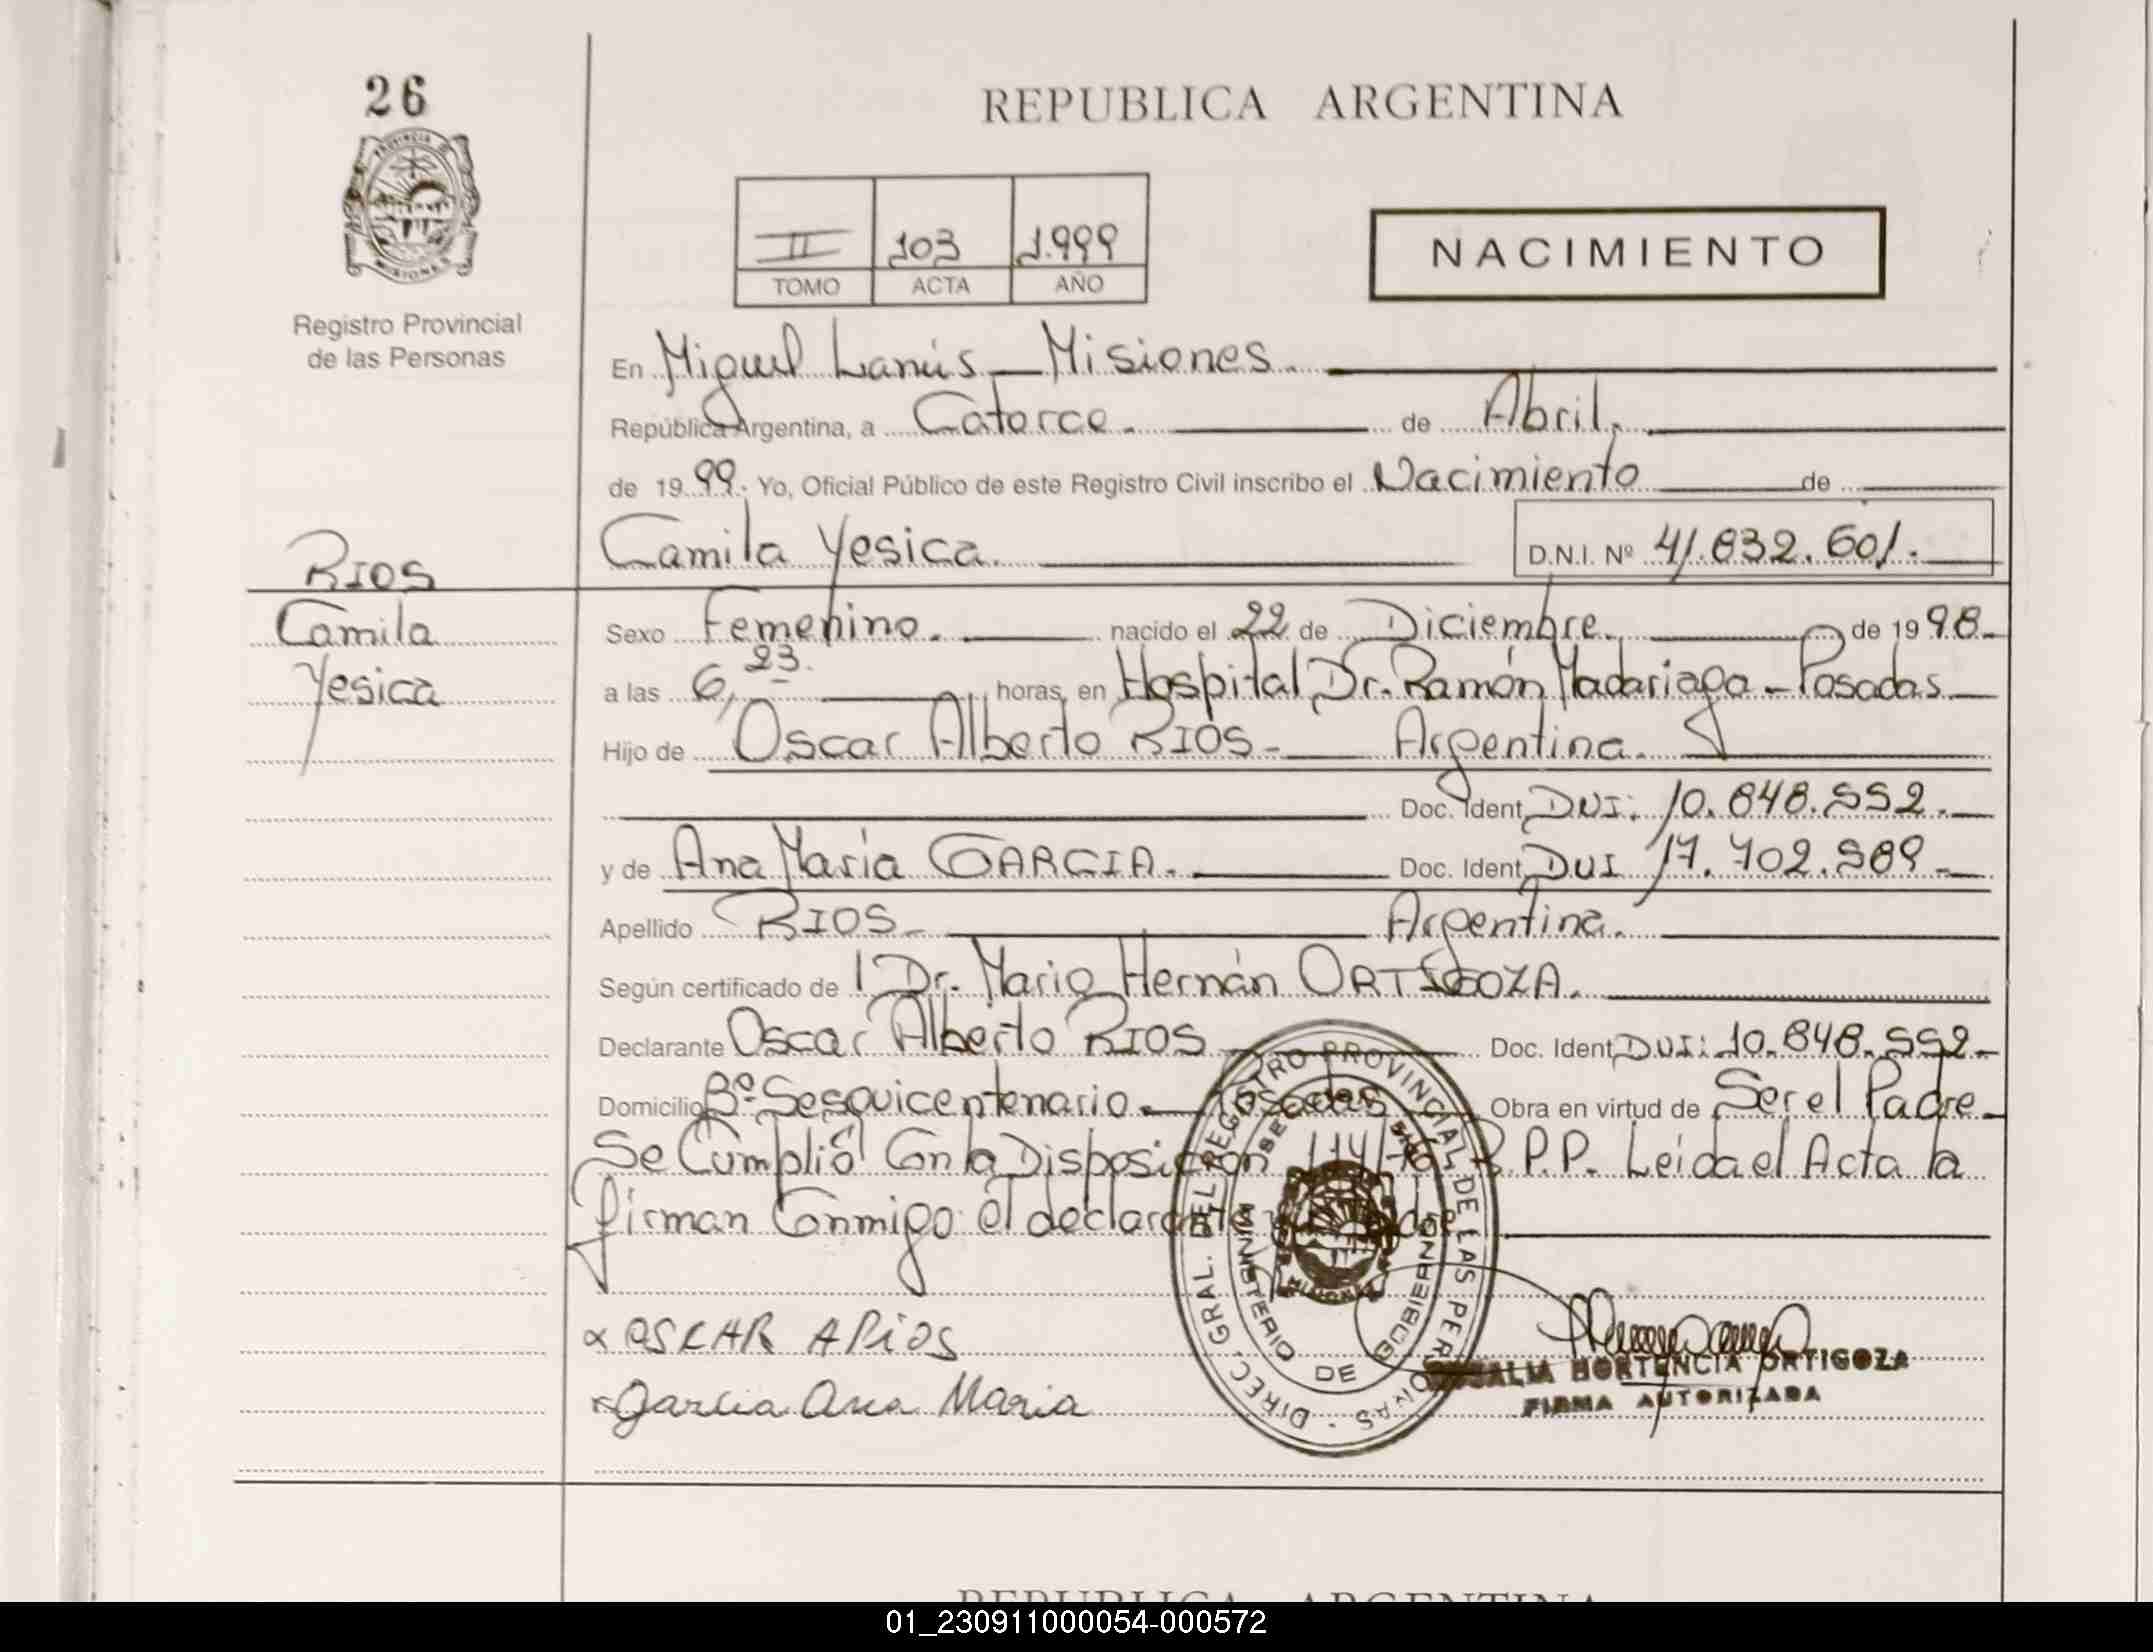 26
REPUBLICA ARGENTINA
PROVINCIA DE
MISIONES
Registro Provincial
de las Personas
II 103 1.999
TOMO ACTA AÑO
NACIMIENTO
En Miguel Lanús - Misiones.
República Argentina, a Catorce. de Abril.
de 1999. Yo, Oficial Público de este Registro Civil inscribo el Nacimiento de
Camila Yesica. D.N.I. Nº 41.832.601.
RIOS
Camila
Yesica
Sexo Femenino. nacido el 22 de Diciembre. de 1998.
a las 6,23. horas, en Hospital Dr. Ramón Madariaga - Posadas
Hijo de Oscar Alberto RIOS - Argentina.
Doc. Ident. DNI: 10.848.552.
y de Ana María GARCIA. Doc. Ident. DNI 17.702.589.
Apellido RIOS - Argentina.
Según certificado de l Dr. Mario Hernán ORTIGOZA.
Declarante Oscar Alberto RIOS Doc. Ident. DNI: 10.848.552.
Domicilio Bº Sesquicentenario - Posadas Obra en virtud de Ser el Padre
Se Cumplió Con la Disposición R.P.P. Leida el Acta la
firman Conmigo el declarante
x OSCAR A RiOS
x Garcia Ana Maria
DIREC. GRAL. DEL REGISTRO PROVINCIAL DE LAS PERSONAS
MINISTERIO DE GOBIERNO
HORTENCIA ORTIGOZA
FIRMA AUTORIZADA
REPUBLICA ARGENTINA
01_230911000054-000572